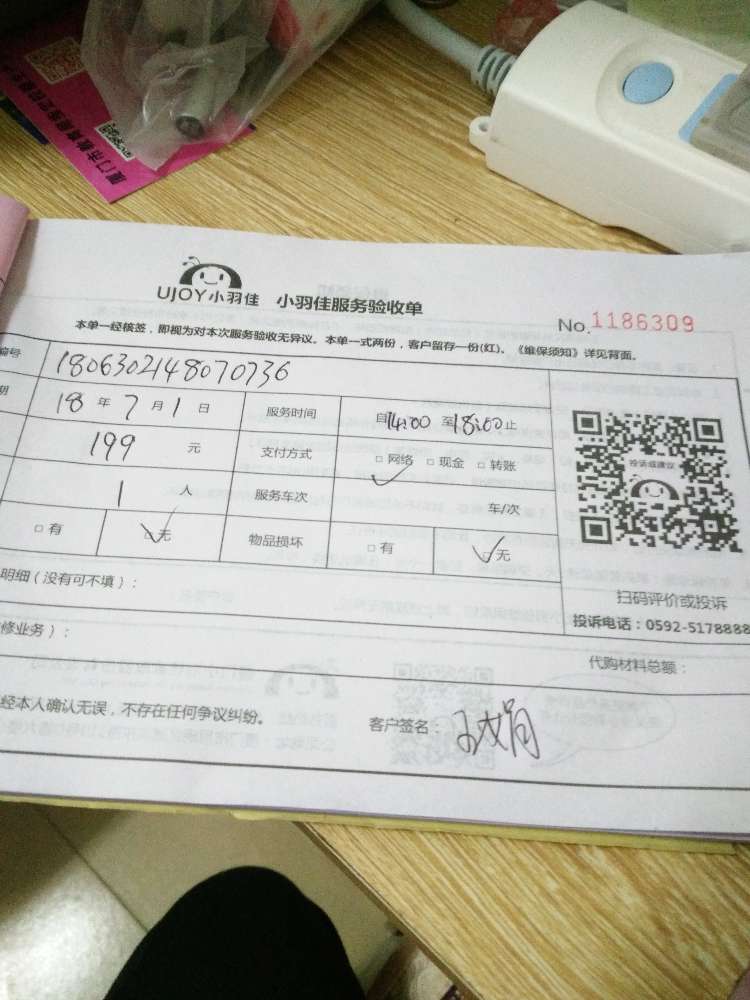 UJOY小羽佳 小羽佳服务验收单
No.1186309
本单一经核签，即视为对本次服务验收无异议。本单一式两份，客户留存一份(红)。《维保须知》详见背面。
编号 1806302148070736
期 18 年 7 月 1 日 服务时间 自14:00 至18:00止
199 元 支付方式 □网络 □现金 □转账
1 人 服务车次 车/次
□有 □无 物品损坏 □有 □无
投诉或建议
扫码评价或投诉
投诉电话：0592-5178888
明细（没有可不填）：
修业务）：
代购材料总额：
经本人确认无误，不存在任何争议纠纷。 客户签名：